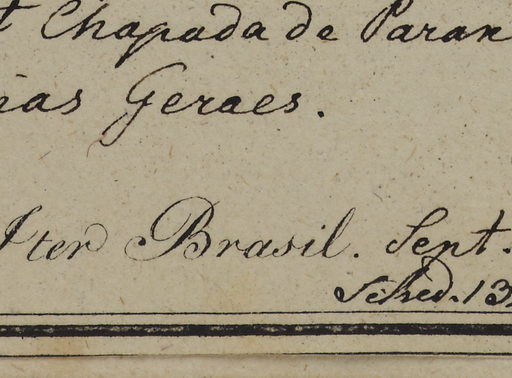 Chapada de Paran
Geraes.
Iter Brasil. Sept.
Sched. 13